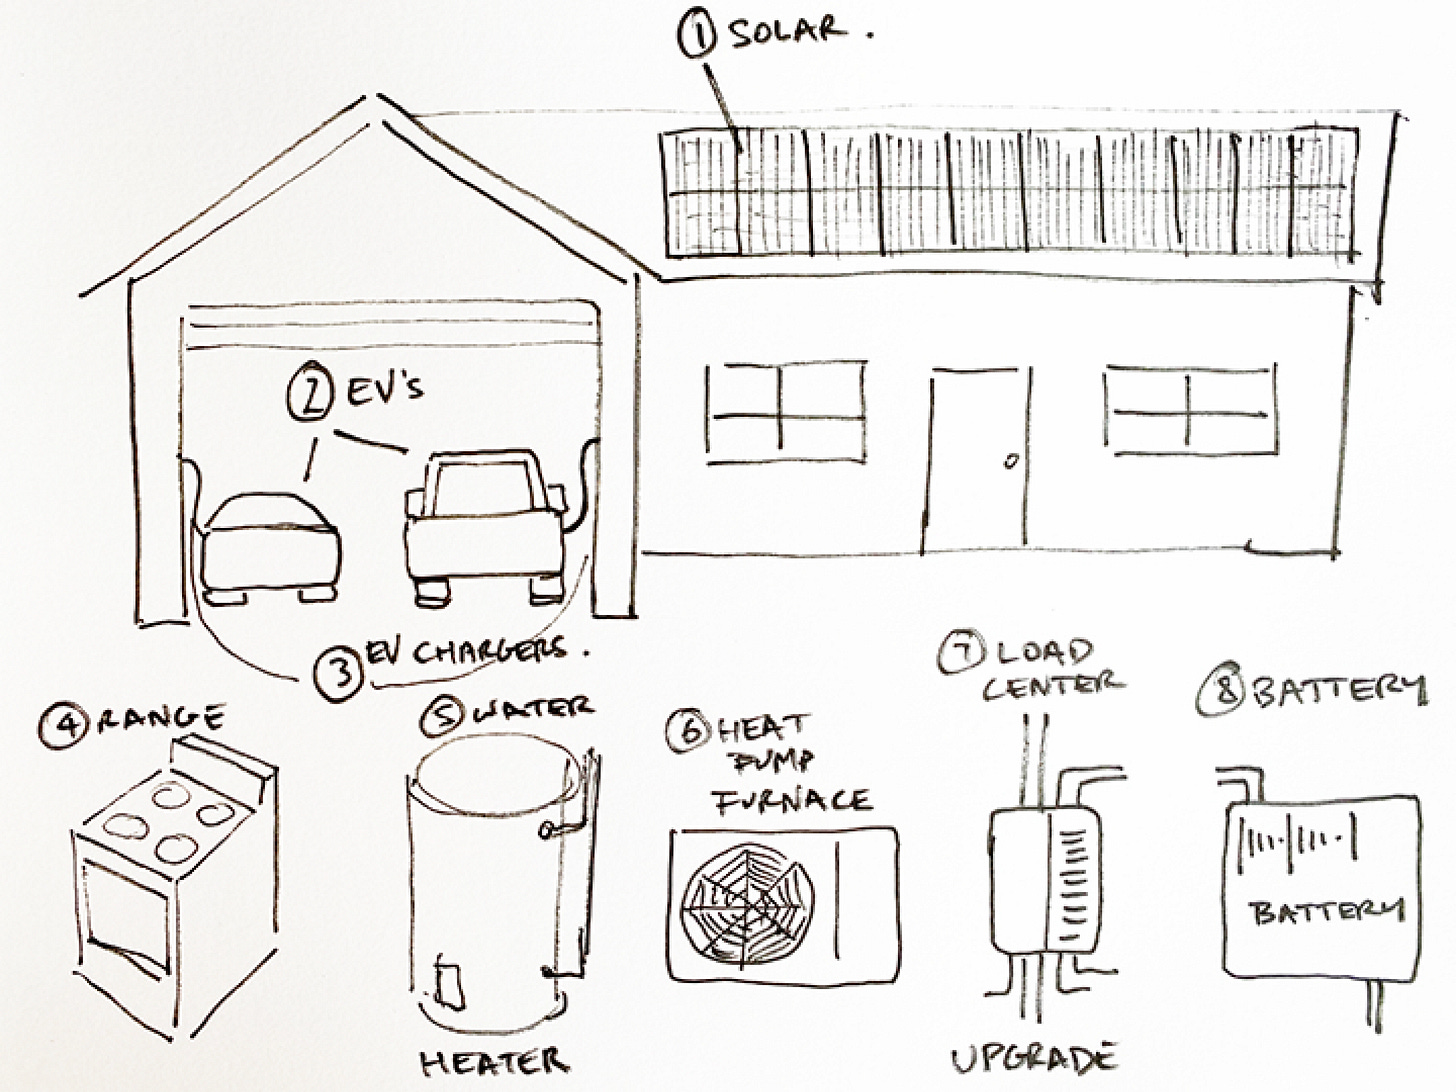 1 SOLAR.
2 EV's
3 EV CHARGERS.
4 RANGE
5 WATER
HEATER
6 HEAT
PUMP
FURNACE
7 LOAD
CENTER
UPGRADE
8 BATTERY
BATTERY